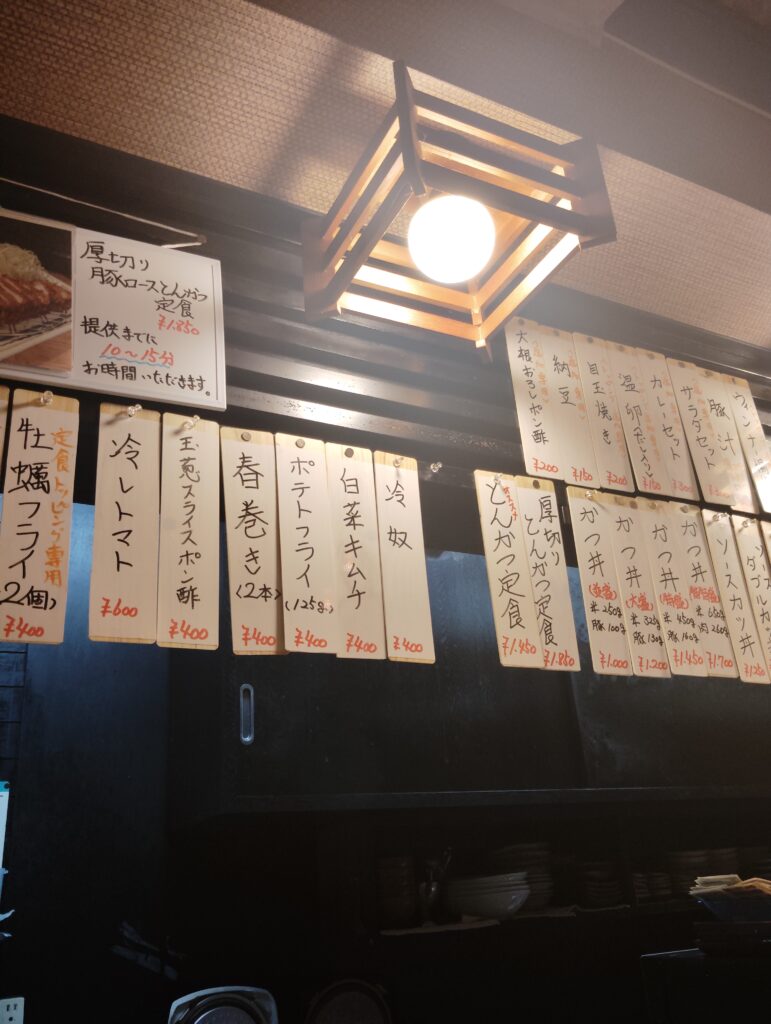 厚切り
豚ロースとんかつ
定食
¥1.850
提供までに
10～15分
お時間いただきます。
定食トッピング専用
牡蠣フライ
(2個)
¥400
冷しトマト
¥600
玉葱スライスポン酢
¥400
春巻き
(2本)
¥400
ポテトフライ
(125g)
¥400
白菜キムチ
¥400
冷奴
¥400
大根おろしポン酢
¥200
納豆
¥150
目玉焼き
¥200
温卵
¥150
カレーセット
¥300
サラダセット
豚汁
とんかつ定食
¥1.450
厚切り
とんかつ定食
¥1.850
かつ丼
(並盛)
米250g
豚100g
¥1.000
かつ丼
(大盛)
米325g
豚130g
¥1.200
かつ丼
(特盛)
米450g
豚160g
¥1.450
かつ丼
米650g
肉260g
¥1.700
ソースカツ丼